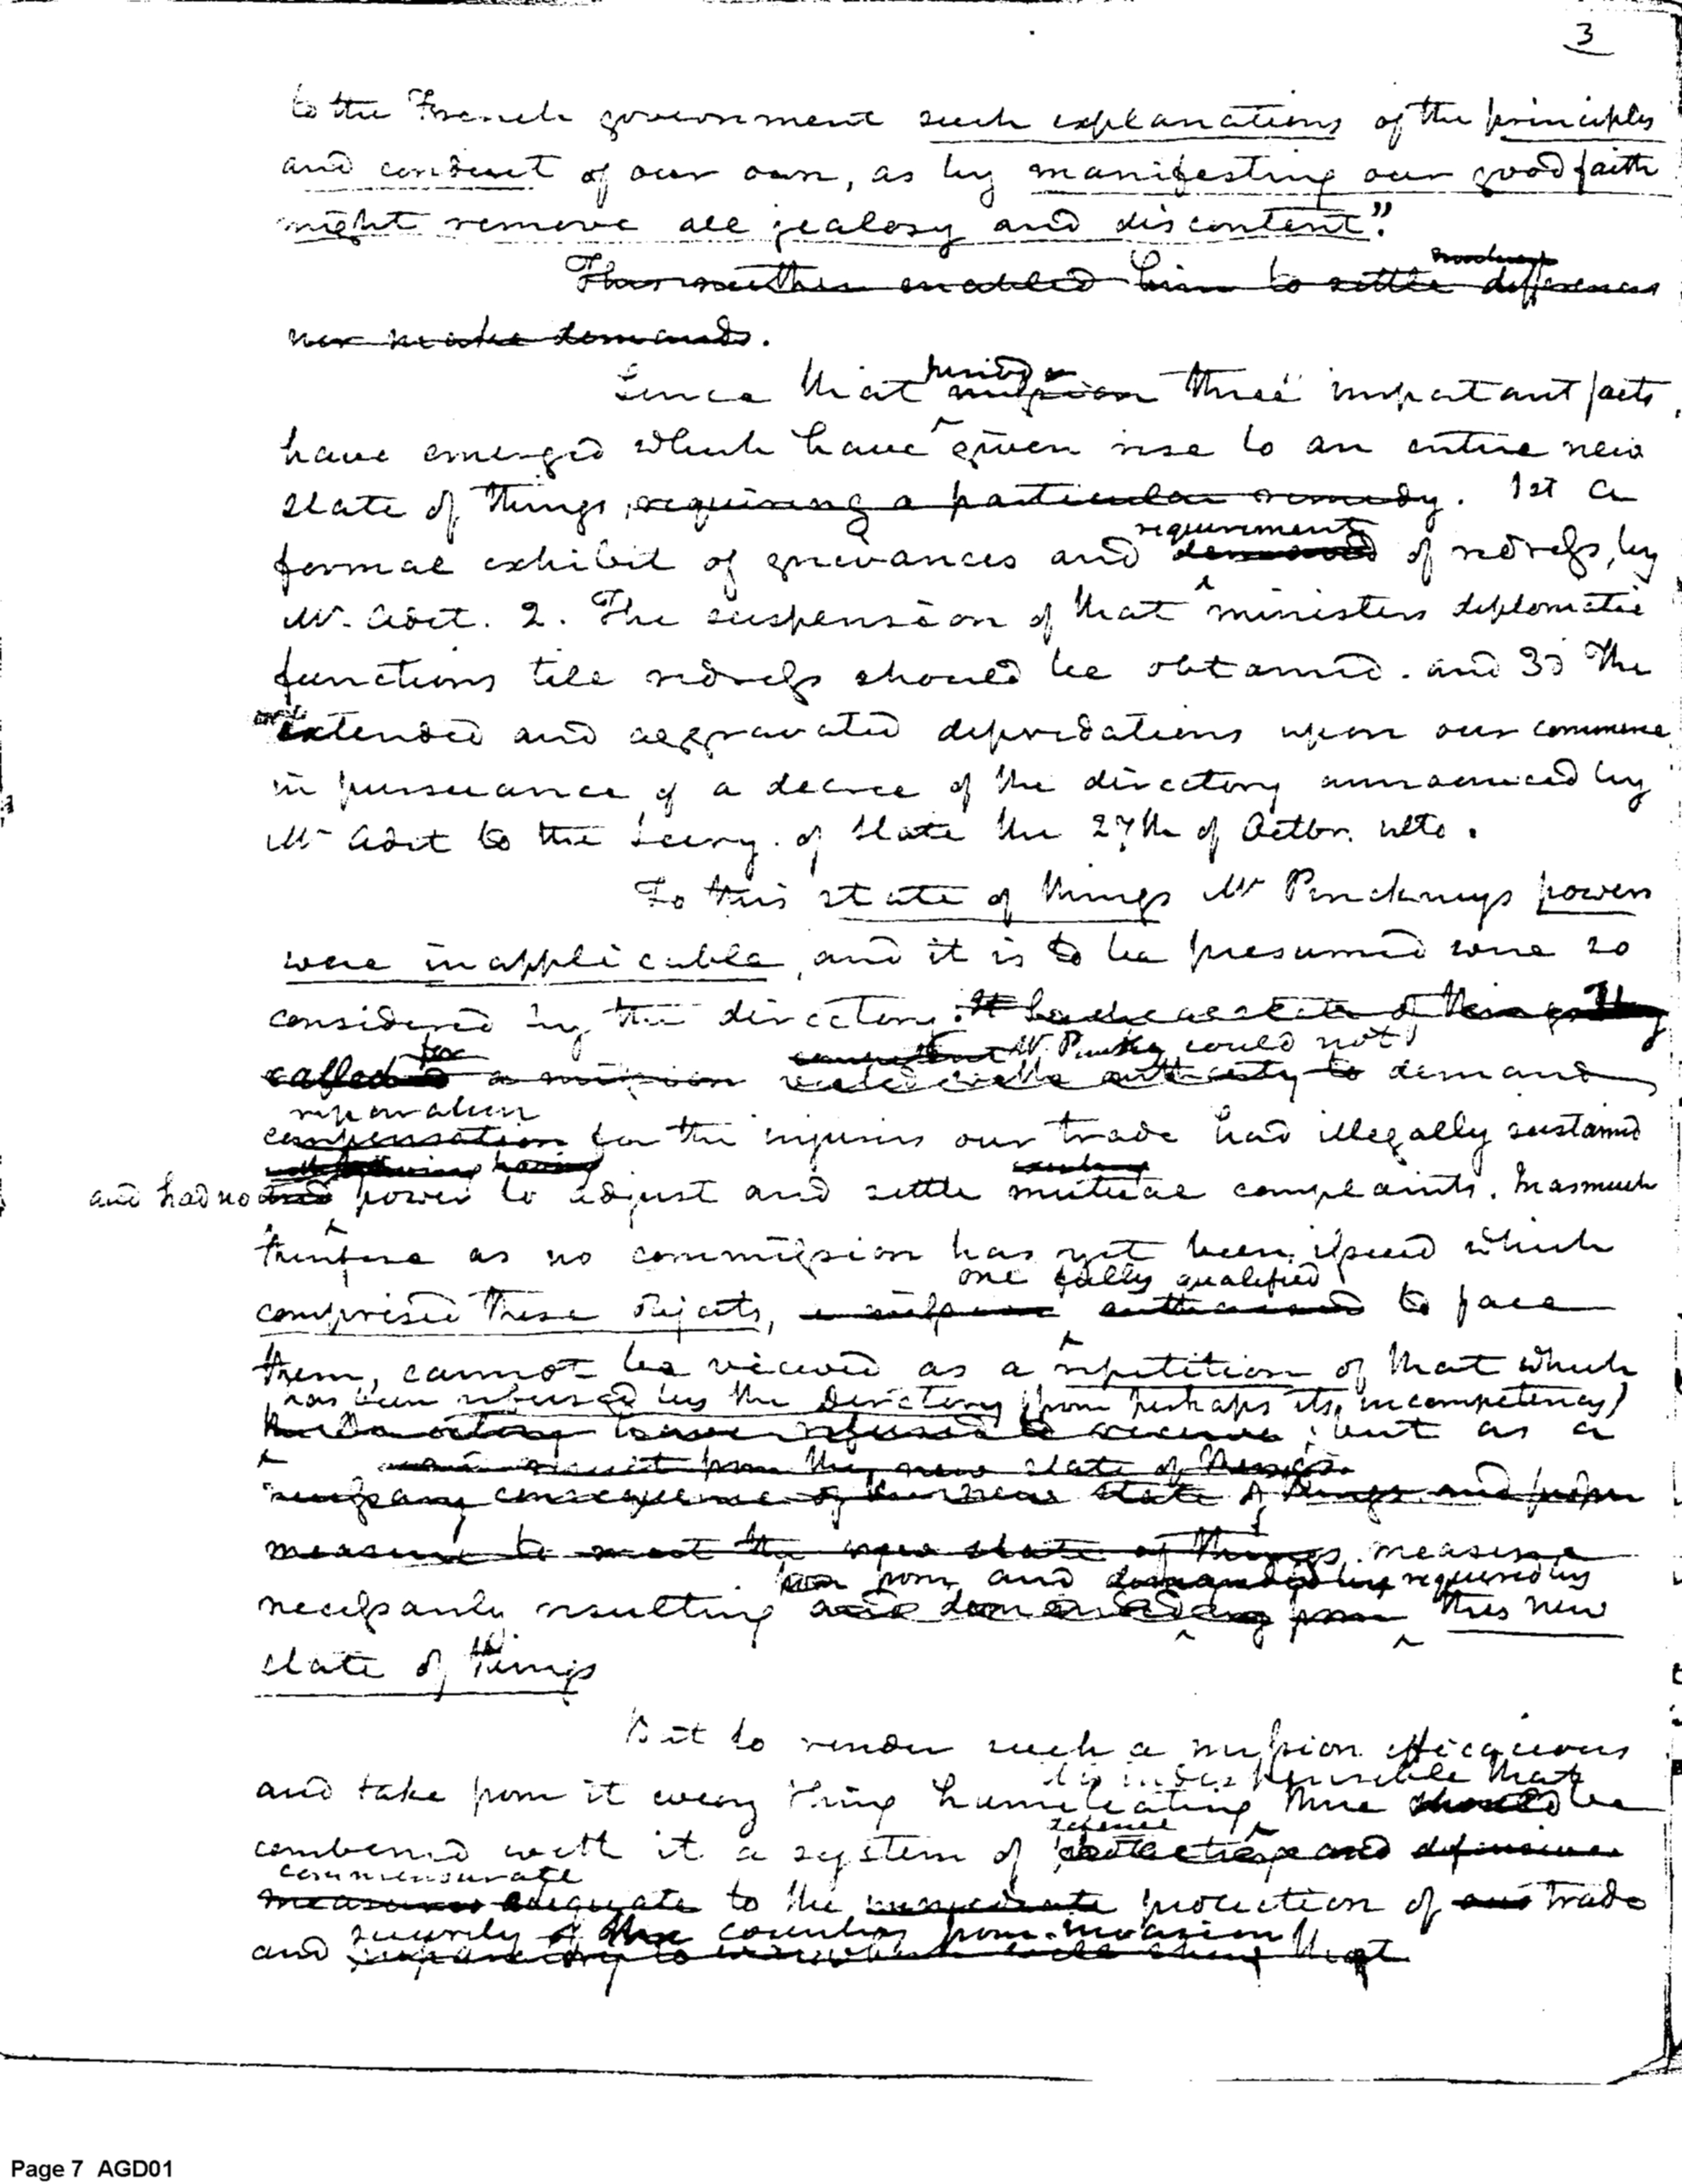 3
to the French government such explanations of the principles
and conduct of our own, as by manifesting our good faith
might remove all jealosy and discontent."
This neither enabled him to settle differences
nor make demands.
period
Since that mission three important facts
have emerged which have given rise to an entire new
state of things, requiring a particular remedy. 1st a
requirement
formal exhibit of grievances and demand of redress, by
Mr. Adet. 2. The suspension of that ministers diplomatic
functions till redress should be obtained. and 3d The
extended and aggravated depredations upon our commerce
in pursuance of a decree of the directory announced by
Mr Adet to the Secry. of State the 27th of Octbr. ulto.
To this state of things Mr Pinckneys powers
were inapplicable, and it is to be presumed were so
considered by the directory. It
for Mr. Pinckny could not
called a mission authority to demand
reparation
compensation for the injuries our trade had illegally sustained
having existing
and had no and power to adjust and settle mutual complaints. Inasmuch
therefore as no commission has yet been issued which
one fully qualified
comprised these objects, a mission authorised to face
them, cannot be viewed as a repetition of that which
has been refused by the Directory (from perhaps its incompetency)
the Directory have refused to receive; but as a
result from the new state of things
necessary consequence of the new state of things and proper
measure to meet the new state of things, measure
from, and demanded by required by
necessarily resulting and demanded from this new
state of things
But to render such a mission efficacious
it is indispensible that
and take from it every thing humiliating there should be
defence
combined with it a system of protection and defensive
commensurate
measures adequate to the immediate protection of our trade
security of the country from invasion
and that
Page 7 AGD01